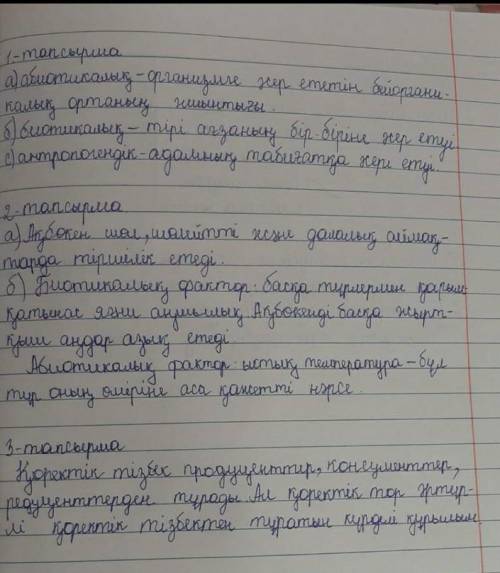 1-тапсырма
а) абиотикалық - организмге әсер ететін бейоргани-
калық ортаның жиынтығы.
б) биотикалық - тірі ағзаның бір-біріне әсер етуі
с) антропогендік - адамның табиғатқа әсері етуі.
2-тапсырма
а) Ақбөкен шөл, шөлейтті және далалық аймақ-
тарда тіршілік етеді.
б) Биотикалық фактор: басқа түрлермен қарым
қатынас яғни аңшылық Ақбөкенді басқа жырт-
қыш аңдар азық етеді
Абиотикалық фактор: ыстық температура - бұл
тур оның өміріне аса қажетті нәрсе.
3-тапсырма
Қоректік тізбек продуценттер, консументтер,
редуценттерден тұрады. Ал қоректік тор әртүр-
лі қоректік тізбектен тұратын күрделі құрылым.